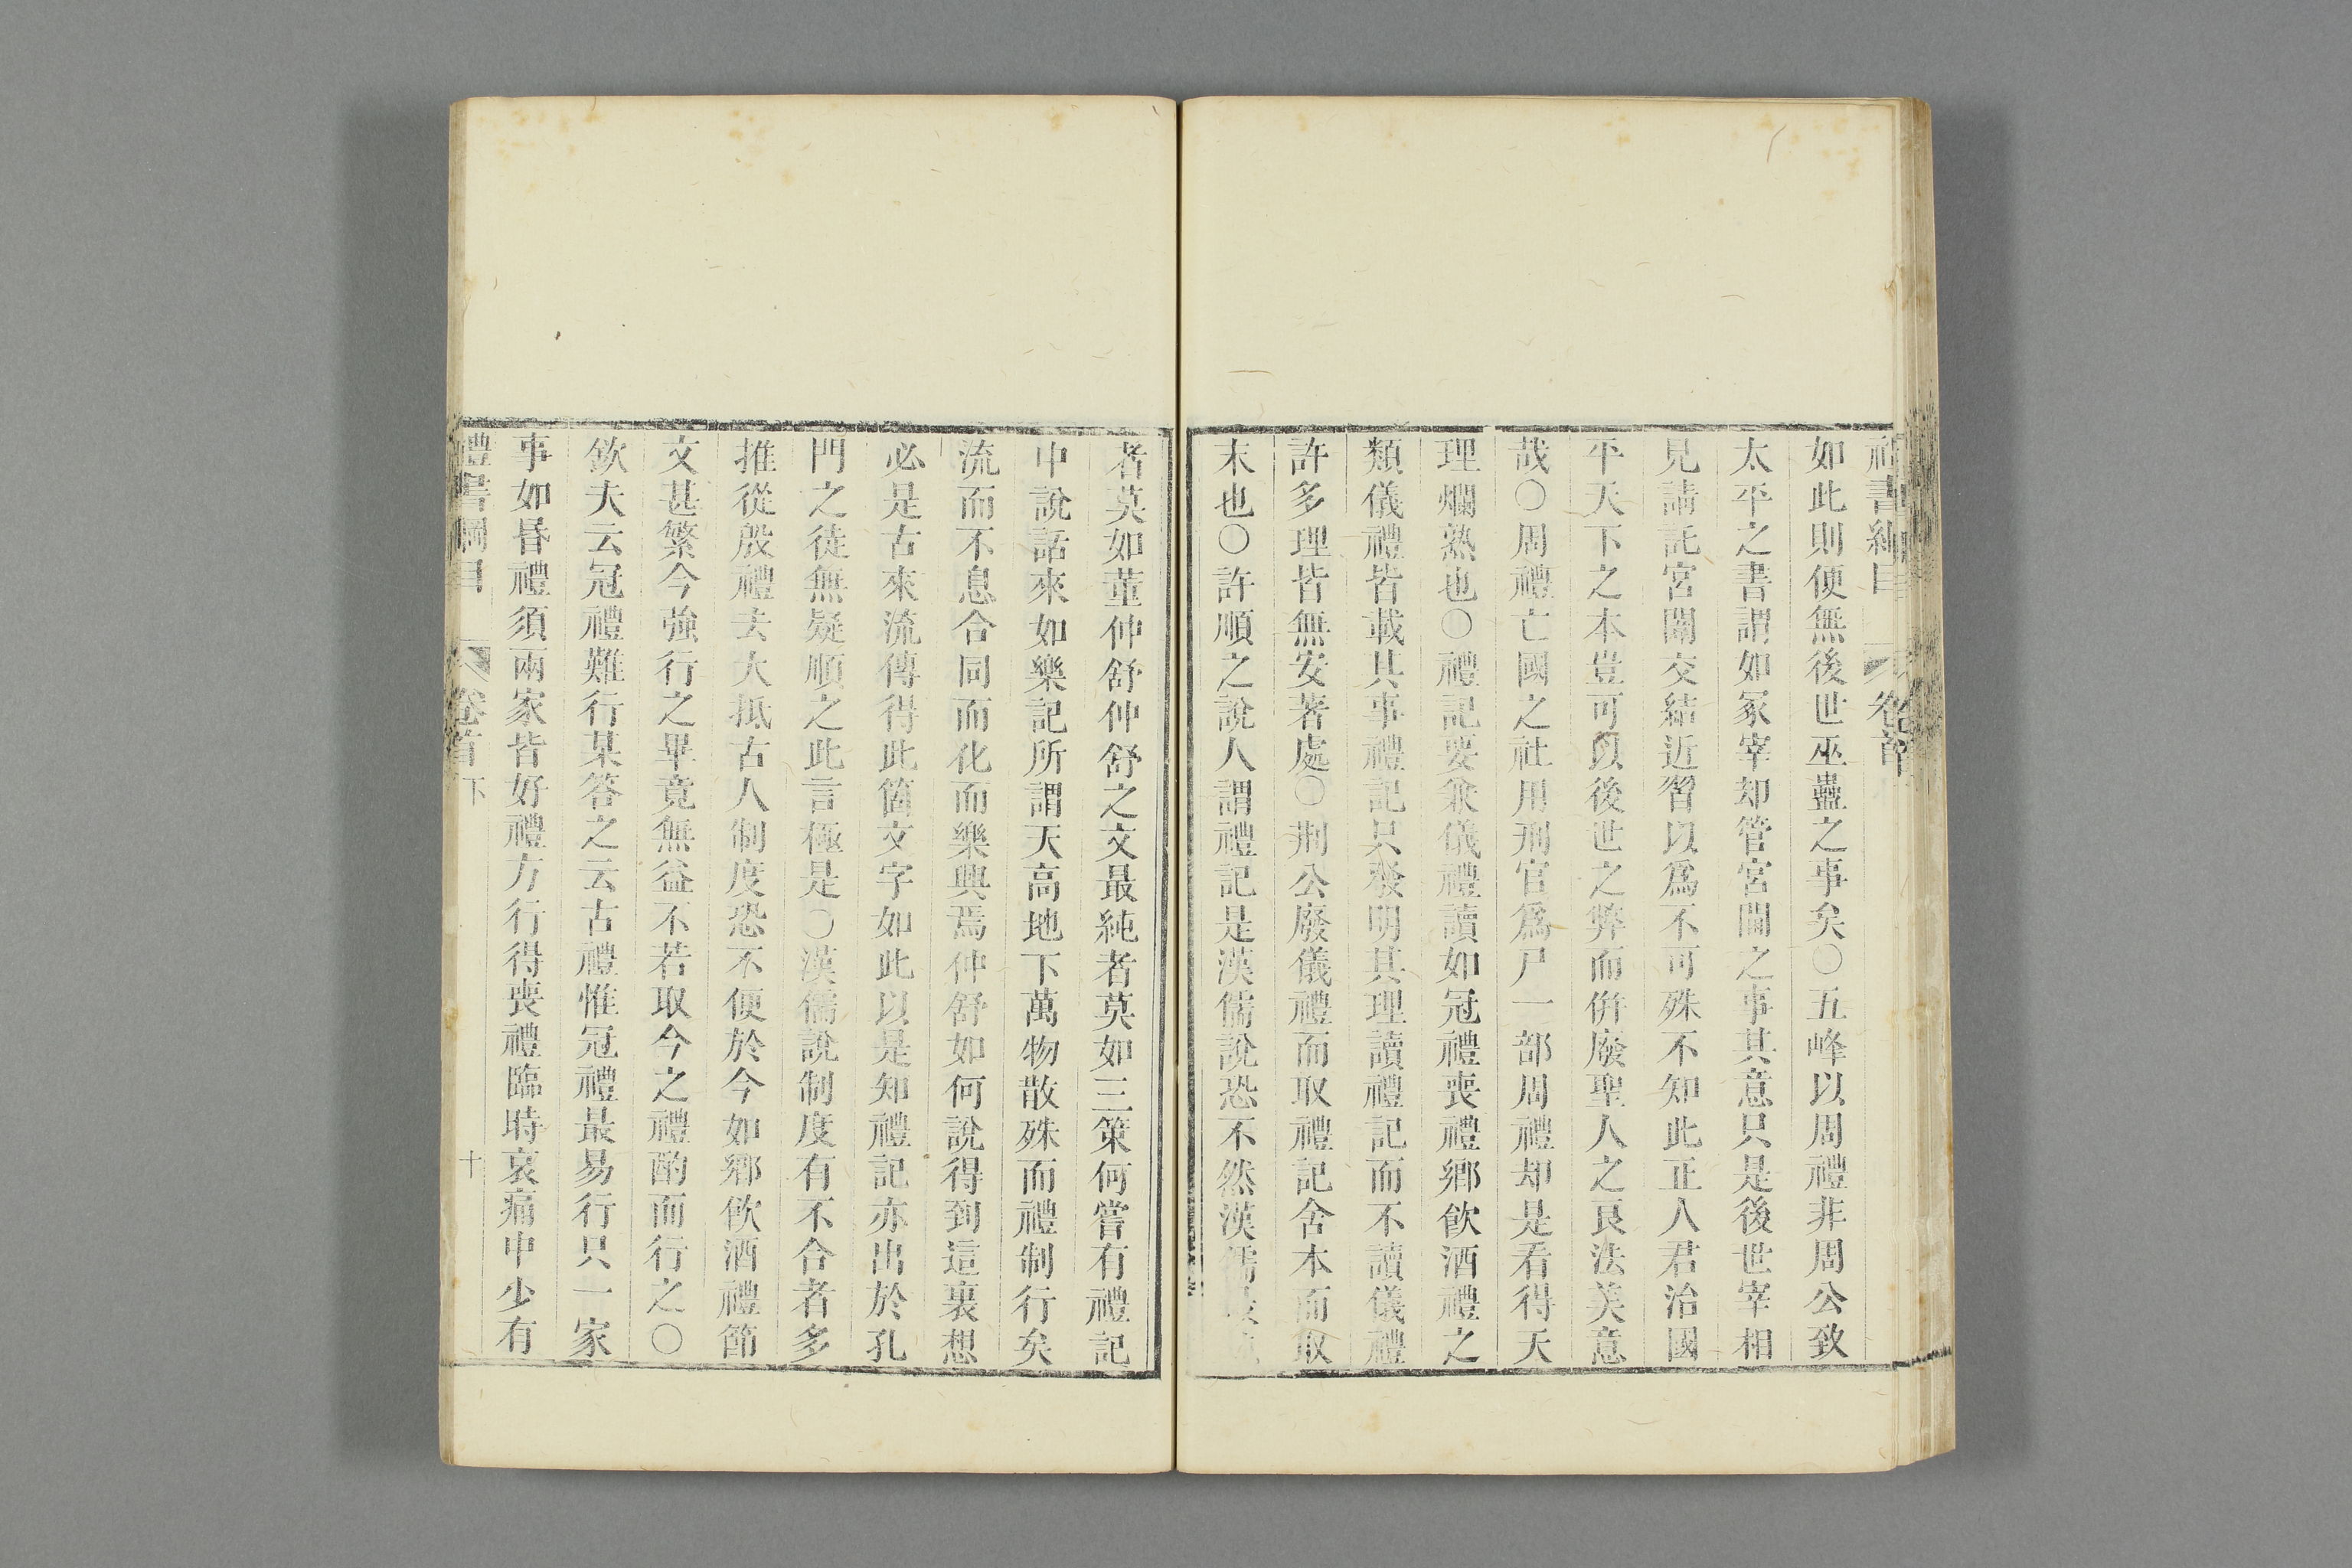 禮書綱目 卷首
如此則便無後世巫蠱之事矣〇五峰以周禮非周公致
太平之書謂如冢宰却管宮閫之事其意只是後世宰相
見請託宮闈交結近習以爲不可殊不知此正人君治國
平天下之本豈可以後世之弊而併廢聖人之良法美意
哉〇周禮亡國之社用刑官爲尸一部周禮却是看得天
理爛熟也〇禮記要兼儀禮讀如冠禮喪禮鄉飲酒禮之
類儀禮皆載其事禮記只發明其理讀禮記而不讀儀禮
許多理皆無安著處〇荆公廢儀禮而取禮記舍本而取
末也〇許順之說人謂禮記是漢儒說恐不然漢儒
者莫如董仲舒仲舒之文最純者莫如三策何嘗有禮記
中說話來如樂記所謂天高地下萬物散殊而禮制行矣
流而不息合同而化而樂興焉仲舒如何說得到這裏想
必是古來流傳得此箇文字如此以是知禮記亦出於孔
門之徒無疑順之此言極是〇漢儒說制度有不合者多
推從殷禮去大抵古人制度恐不便於今如鄉飲酒禮節
文甚繁今強行之畢竟無益不若取今之禮酌而行之〇
欽夫云冠禮難行某答之云古禮惟冠禮最易行只一家
事如昏禮須兩家皆好禮方行得喪禮臨時哀痛中少有
禮書綱目 卷首下 十